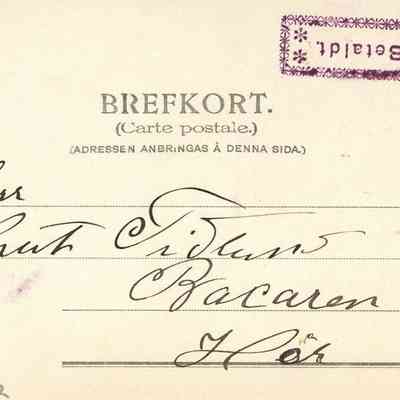 Betaldt.
BREFKORT.
(Carte postale.)
(ADRESSEN ANBRINGAS Å DENNA SIDA.)
Tidlund
Bacaren
Hör